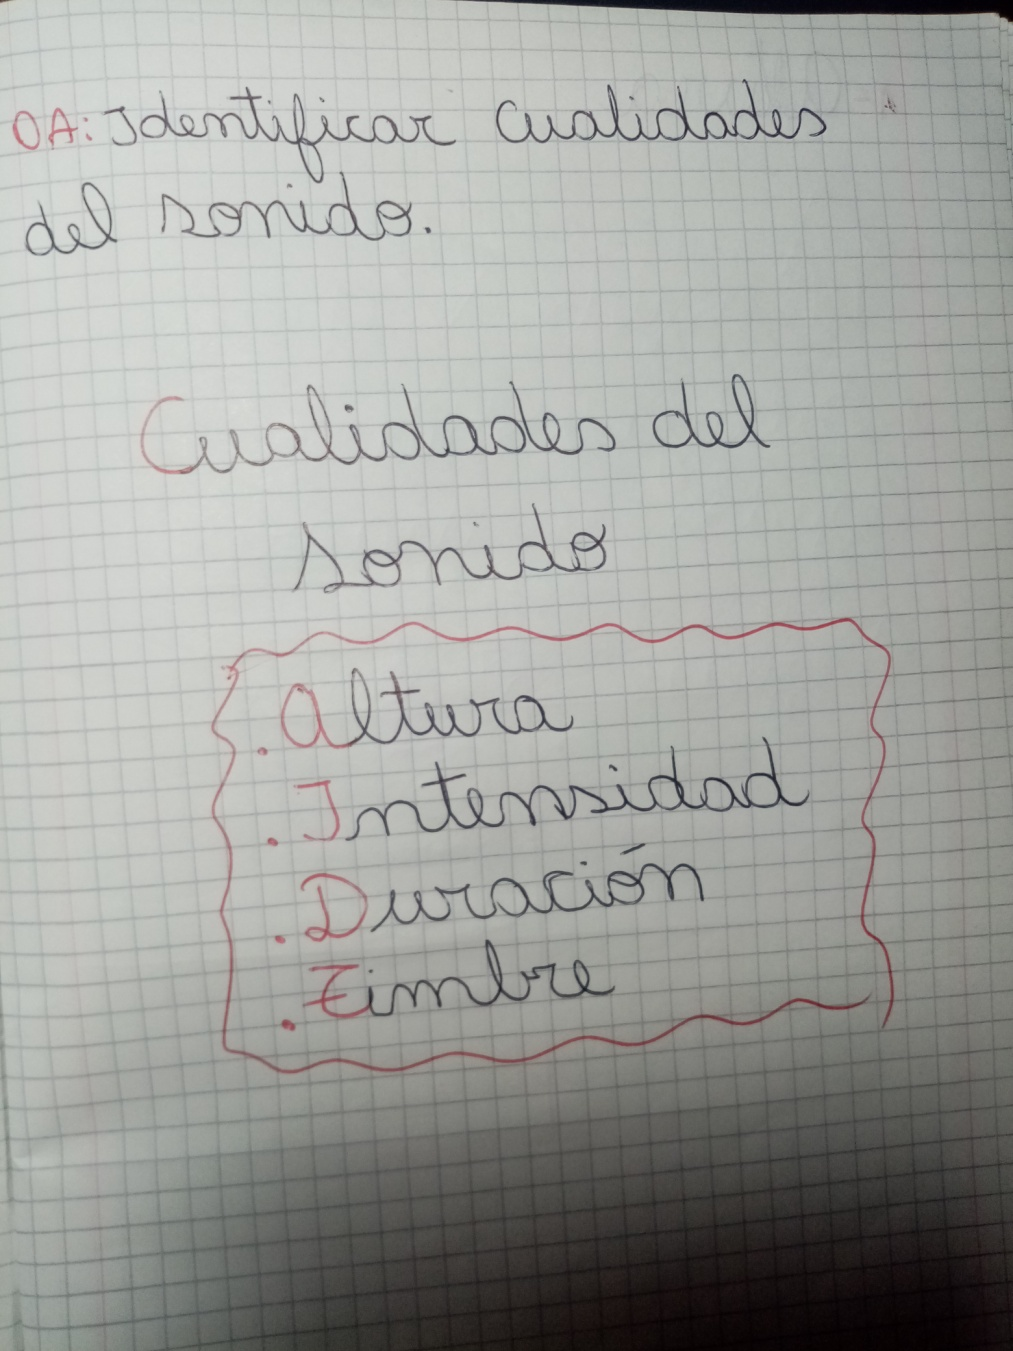 OA: Identificar Cualidades
del sonido.
Cualidades del
sonido
. Altura
. Intensidad
. Duración
. Timbre